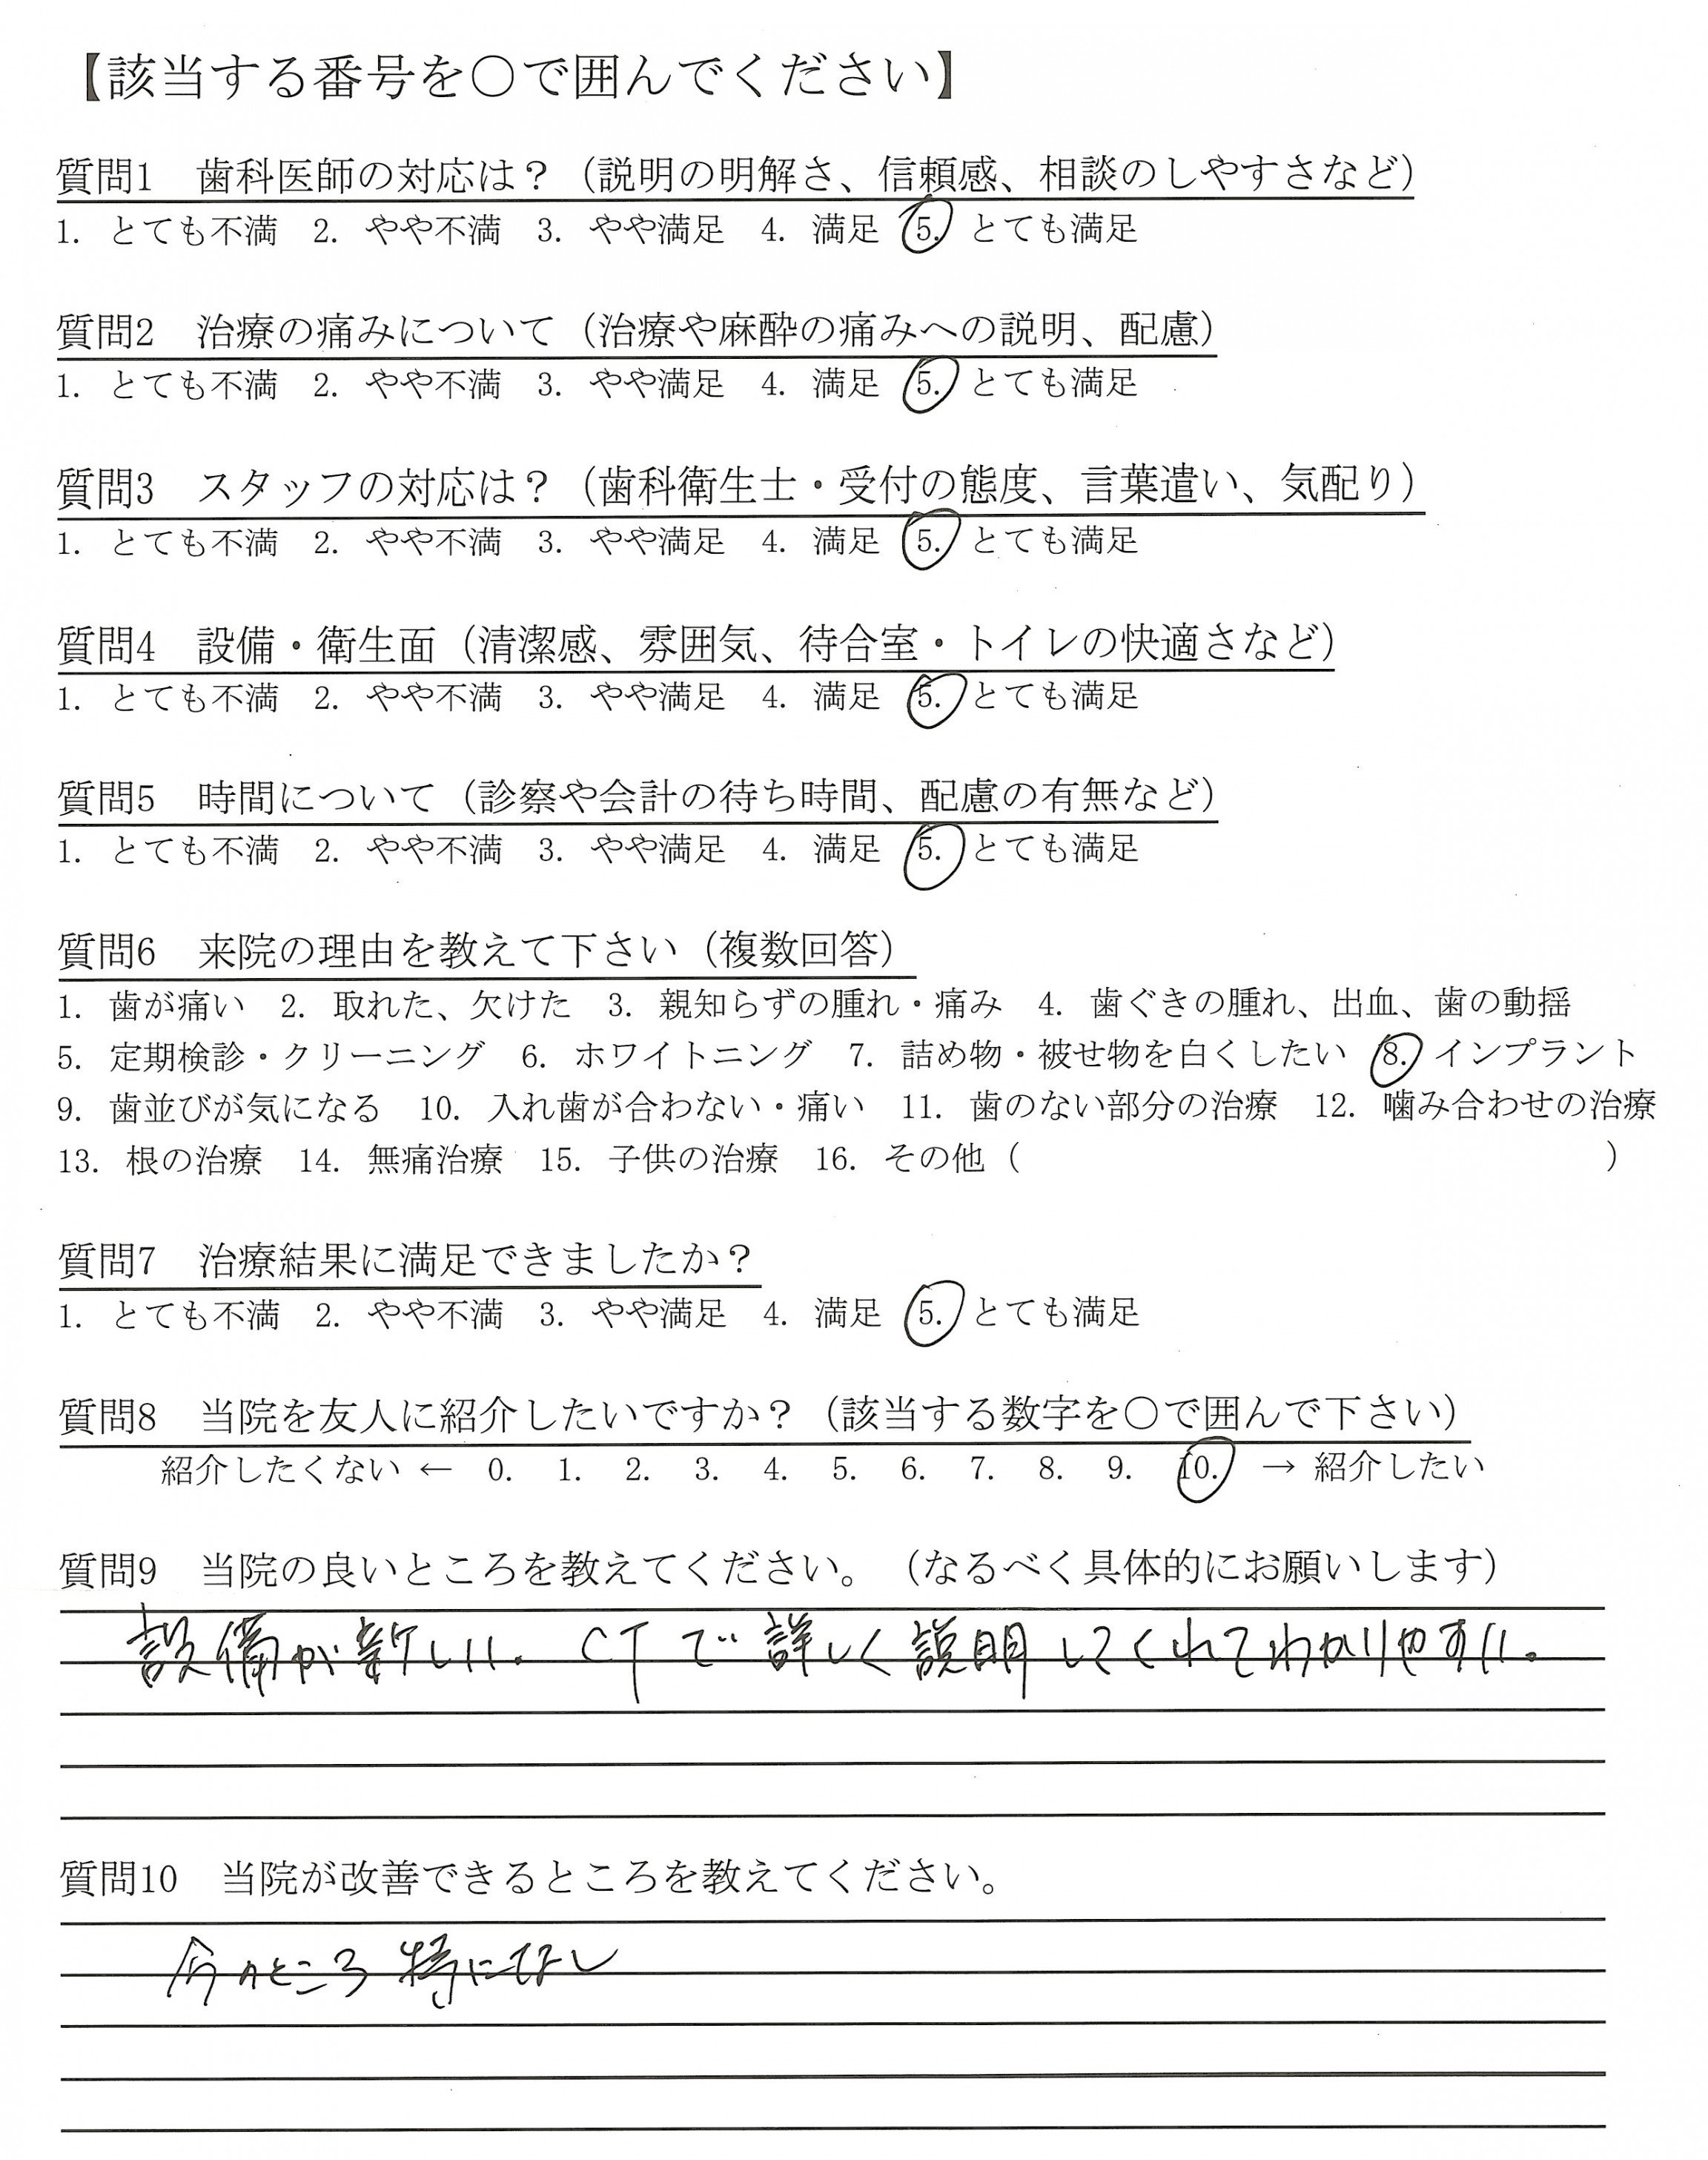 【該当する番号を○で囲んでください】
質問1　歯科医師の対応は？（説明の明解さ、信頼感、相談のしやすさなど）
1. とても不満　2. やや不満　3. やや満足　4. 満足　5. とても満足
質問2　治療の痛みについて（治療や麻酔の痛みへの説明、配慮）
1. とても不満　2. やや不満　3. やや満足　4. 満足　5. とても満足
質問3　スタッフの対応は？（歯科衛生士・受付の態度、言葉遣い、気配り）
1. とても不満　2. やや不満　3. やや満足　4. 満足　5. とても満足
質問4　設備・衛生面（清潔感、雰囲気、待合室・トイレの快適さなど）
1. とても不満　2. やや不満　3. やや満足　4. 満足　5. とても満足
質問5　時間について（診察や会計の待ち時間、配慮の有無など）
1. とても不満　2. やや不満　3. やや満足　4. 満足　5. とても満足
質問6　来院の理由を教えて下さい（複数回答）
1. 歯が痛い　2. 取れた、欠けた　3. 親知らずの腫れ・痛み　4. 歯ぐきの腫れ、出血、歯の動揺
5. 定期検診・クリーニング　6. ホワイトニング　7. 詰め物・被せ物を白くしたい　8. インプラント
9. 歯並びが気になる　10. 入れ歯が合わない・痛い　11. 歯のない部分の治療　12. 噛み合わせの治療
13. 根の治療　14. 無痛治療　15. 子供の治療　16. その他（　　　）
質問7　治療結果に満足できましたか？
1. とても不満　2. やや不満　3. やや満足　4. 満足　5. とても満足
質問8　当院を友人に紹介したいですか？（該当する数字を○で囲んで下さい）
紹介したくない ← 0.　1.　2.　3.　4.　5.　6.　7.　8.　9.　10.　→ 紹介したい
質問9　当院の良いところを教えてください。（なるべく具体的にお願いします）
設備が新しい。CTで詳しく説明してくれてわかりやすい。
質問10　当院が改善できるところを教えてください。
今のところ特になし